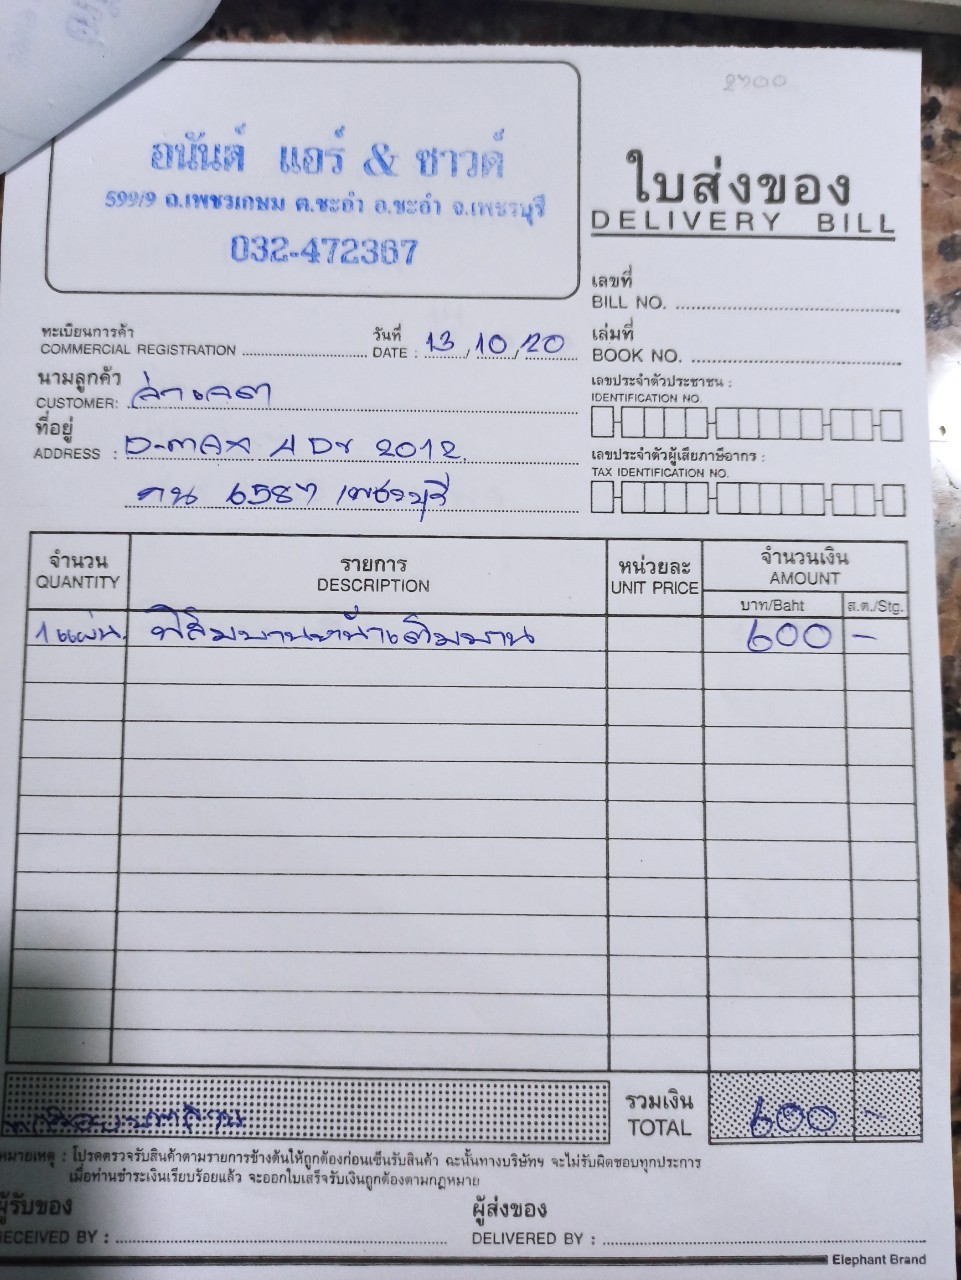 2700
อนันต์ แอร์ & ซาวด์
599/9 ถ.เพชรเกษม ต.ชะอำ อ.ชะอำ จ.เพชรบุรี
032-472367
ใบส่งของ
DELIVERY BILL
เลขที่
BILL NO.
ทะเบียนการค้า
COMMERCIAL REGISTRATION
วันที่
DATE : 13/10/20
เล่มที่
BOOK NO.
นามลูกค้า
CUSTOMER:
เลขประจำตัวประชาชน :
IDENTIFICATION NO.
ที่อยู่
ADDRESS : D-max 4 Dr 2012
เลขประจำตัวผู้เสียภาษีอากร :
TAX IDENTIFICATION NO.
กน 6587 เพชรบุรี
จำนวน
QUANTITY
รายการ
DESCRIPTION
หน่วยละ
UNIT PRICE
จำนวนเงิน
AMOUNT
บาท/Baht
ส.ต./Stg.
1 แผ่น ฟิล์มบานหน้าเต็มบาน 600 -
รวมเงิน
TOTAL
600 -
หกร้อยบาทถ้วน
หมายเหตุ : โปรดตรวจรับสินค้าตามรายการข้างต้นให้ถูกต้องก่อนเซ็นรับสินค้า ฉะนั้นทางบริษัทฯ จะไม่รับผิดชอบทุกประการ
เมื่อท่านชำระเงินเรียบร้อยแล้ว จะออกใบเสร็จรับเงินถูกต้องตามกฎหมาย
ผู้รับของ
RECEIVED BY :
ผู้ส่งของ
DELIVERED BY :
Elephant Brand